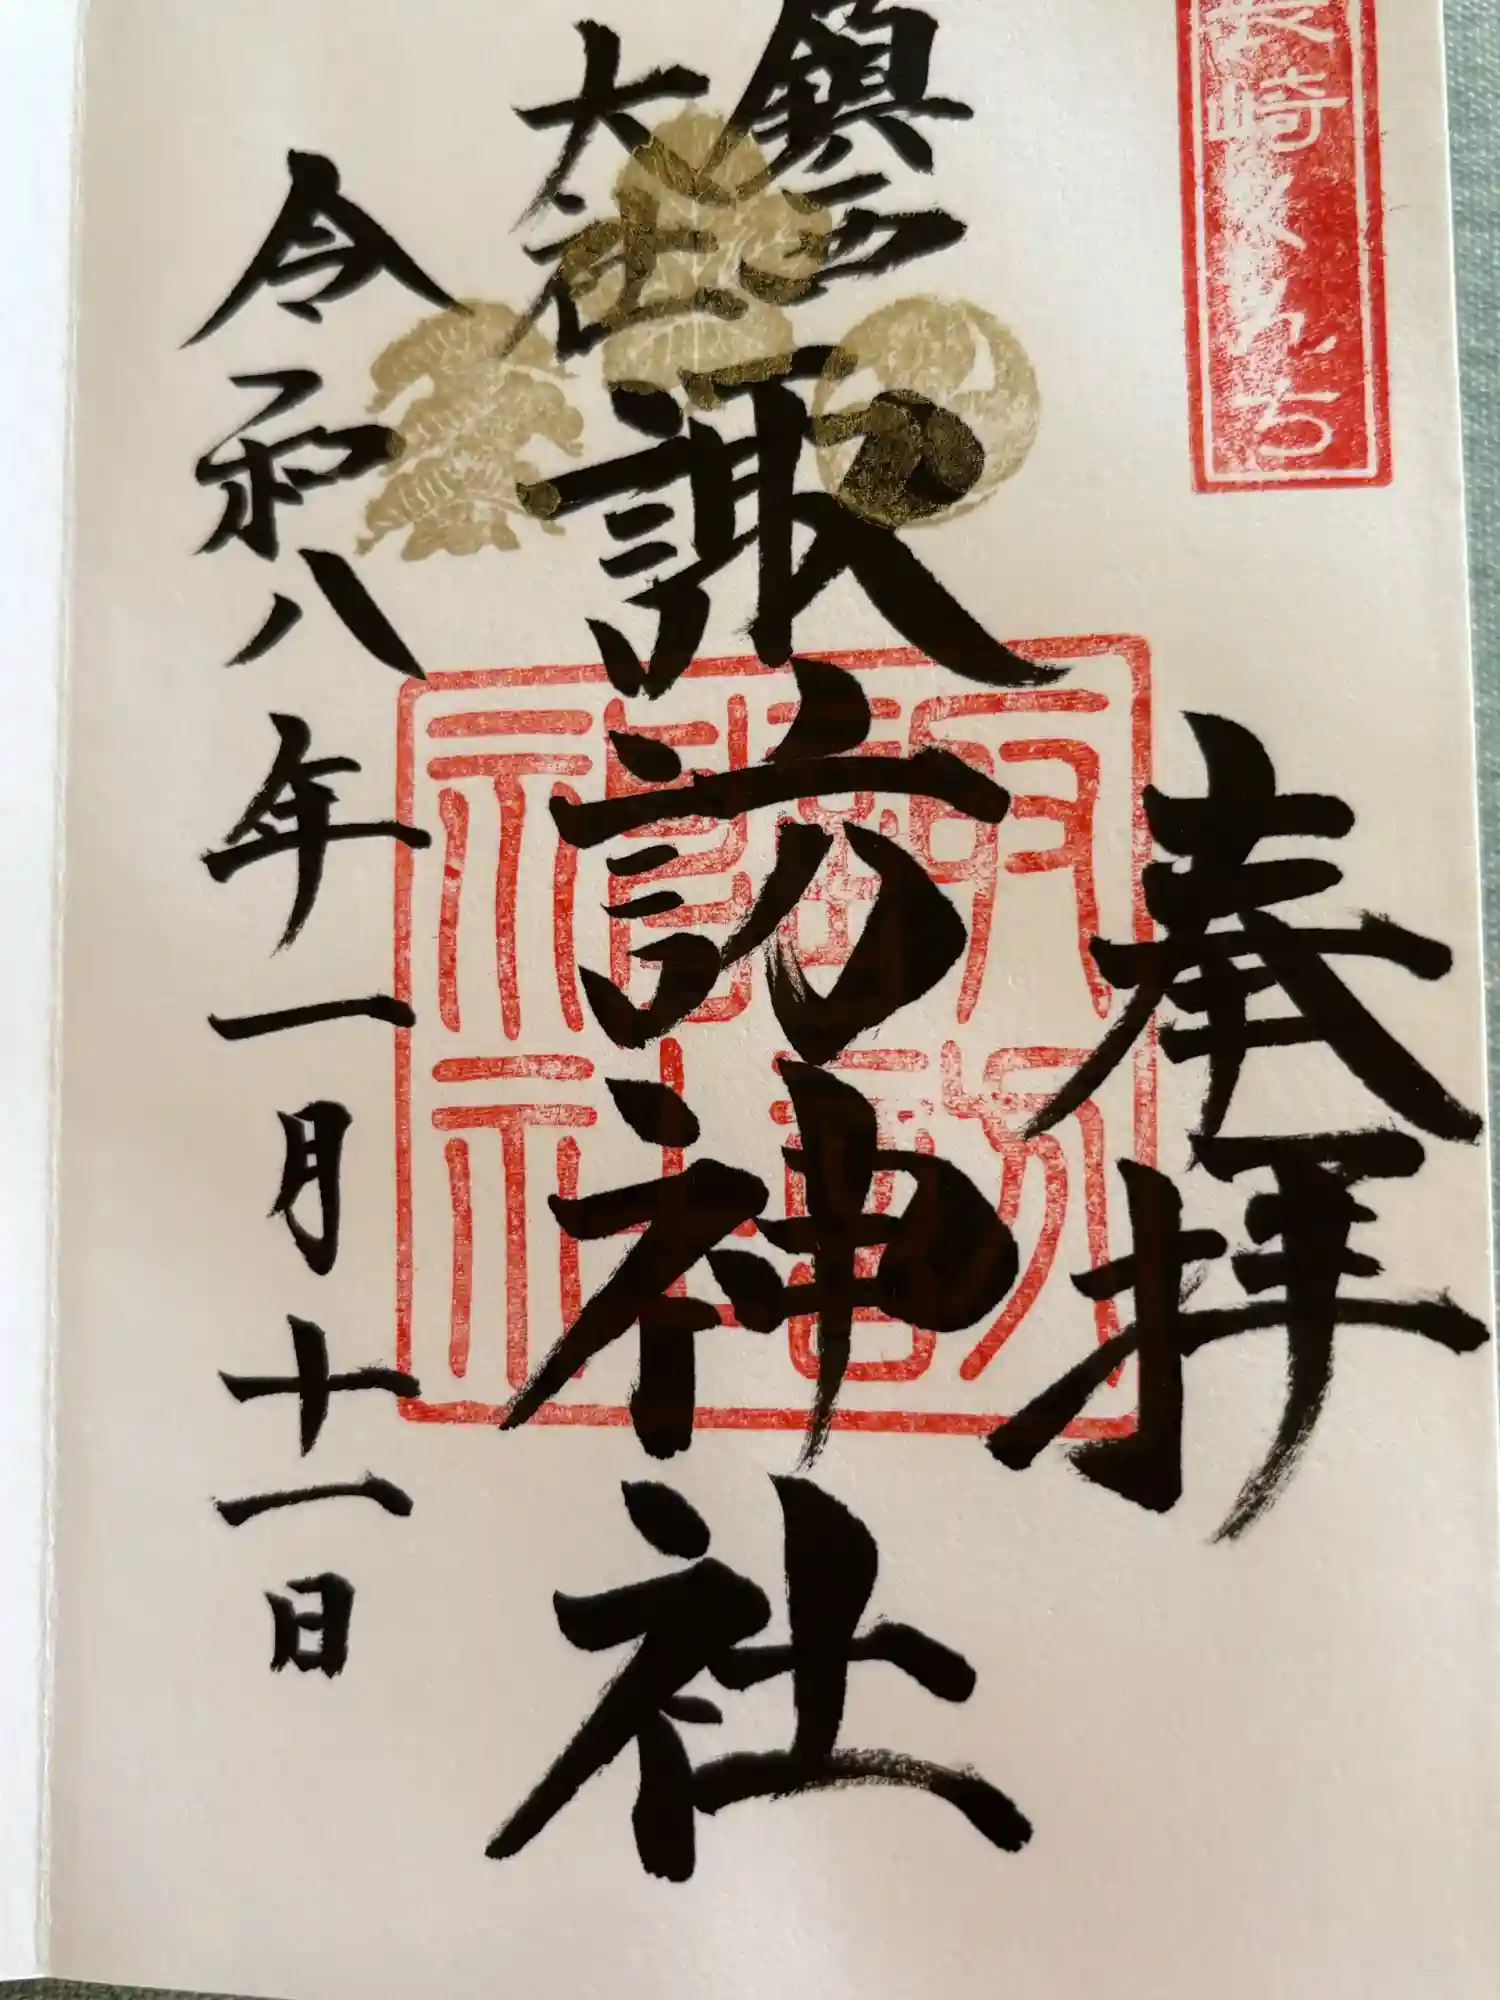 奉拝
鎮西
大社
諏訪神社
令和八年一月十一日
諏訪
神社
長崎